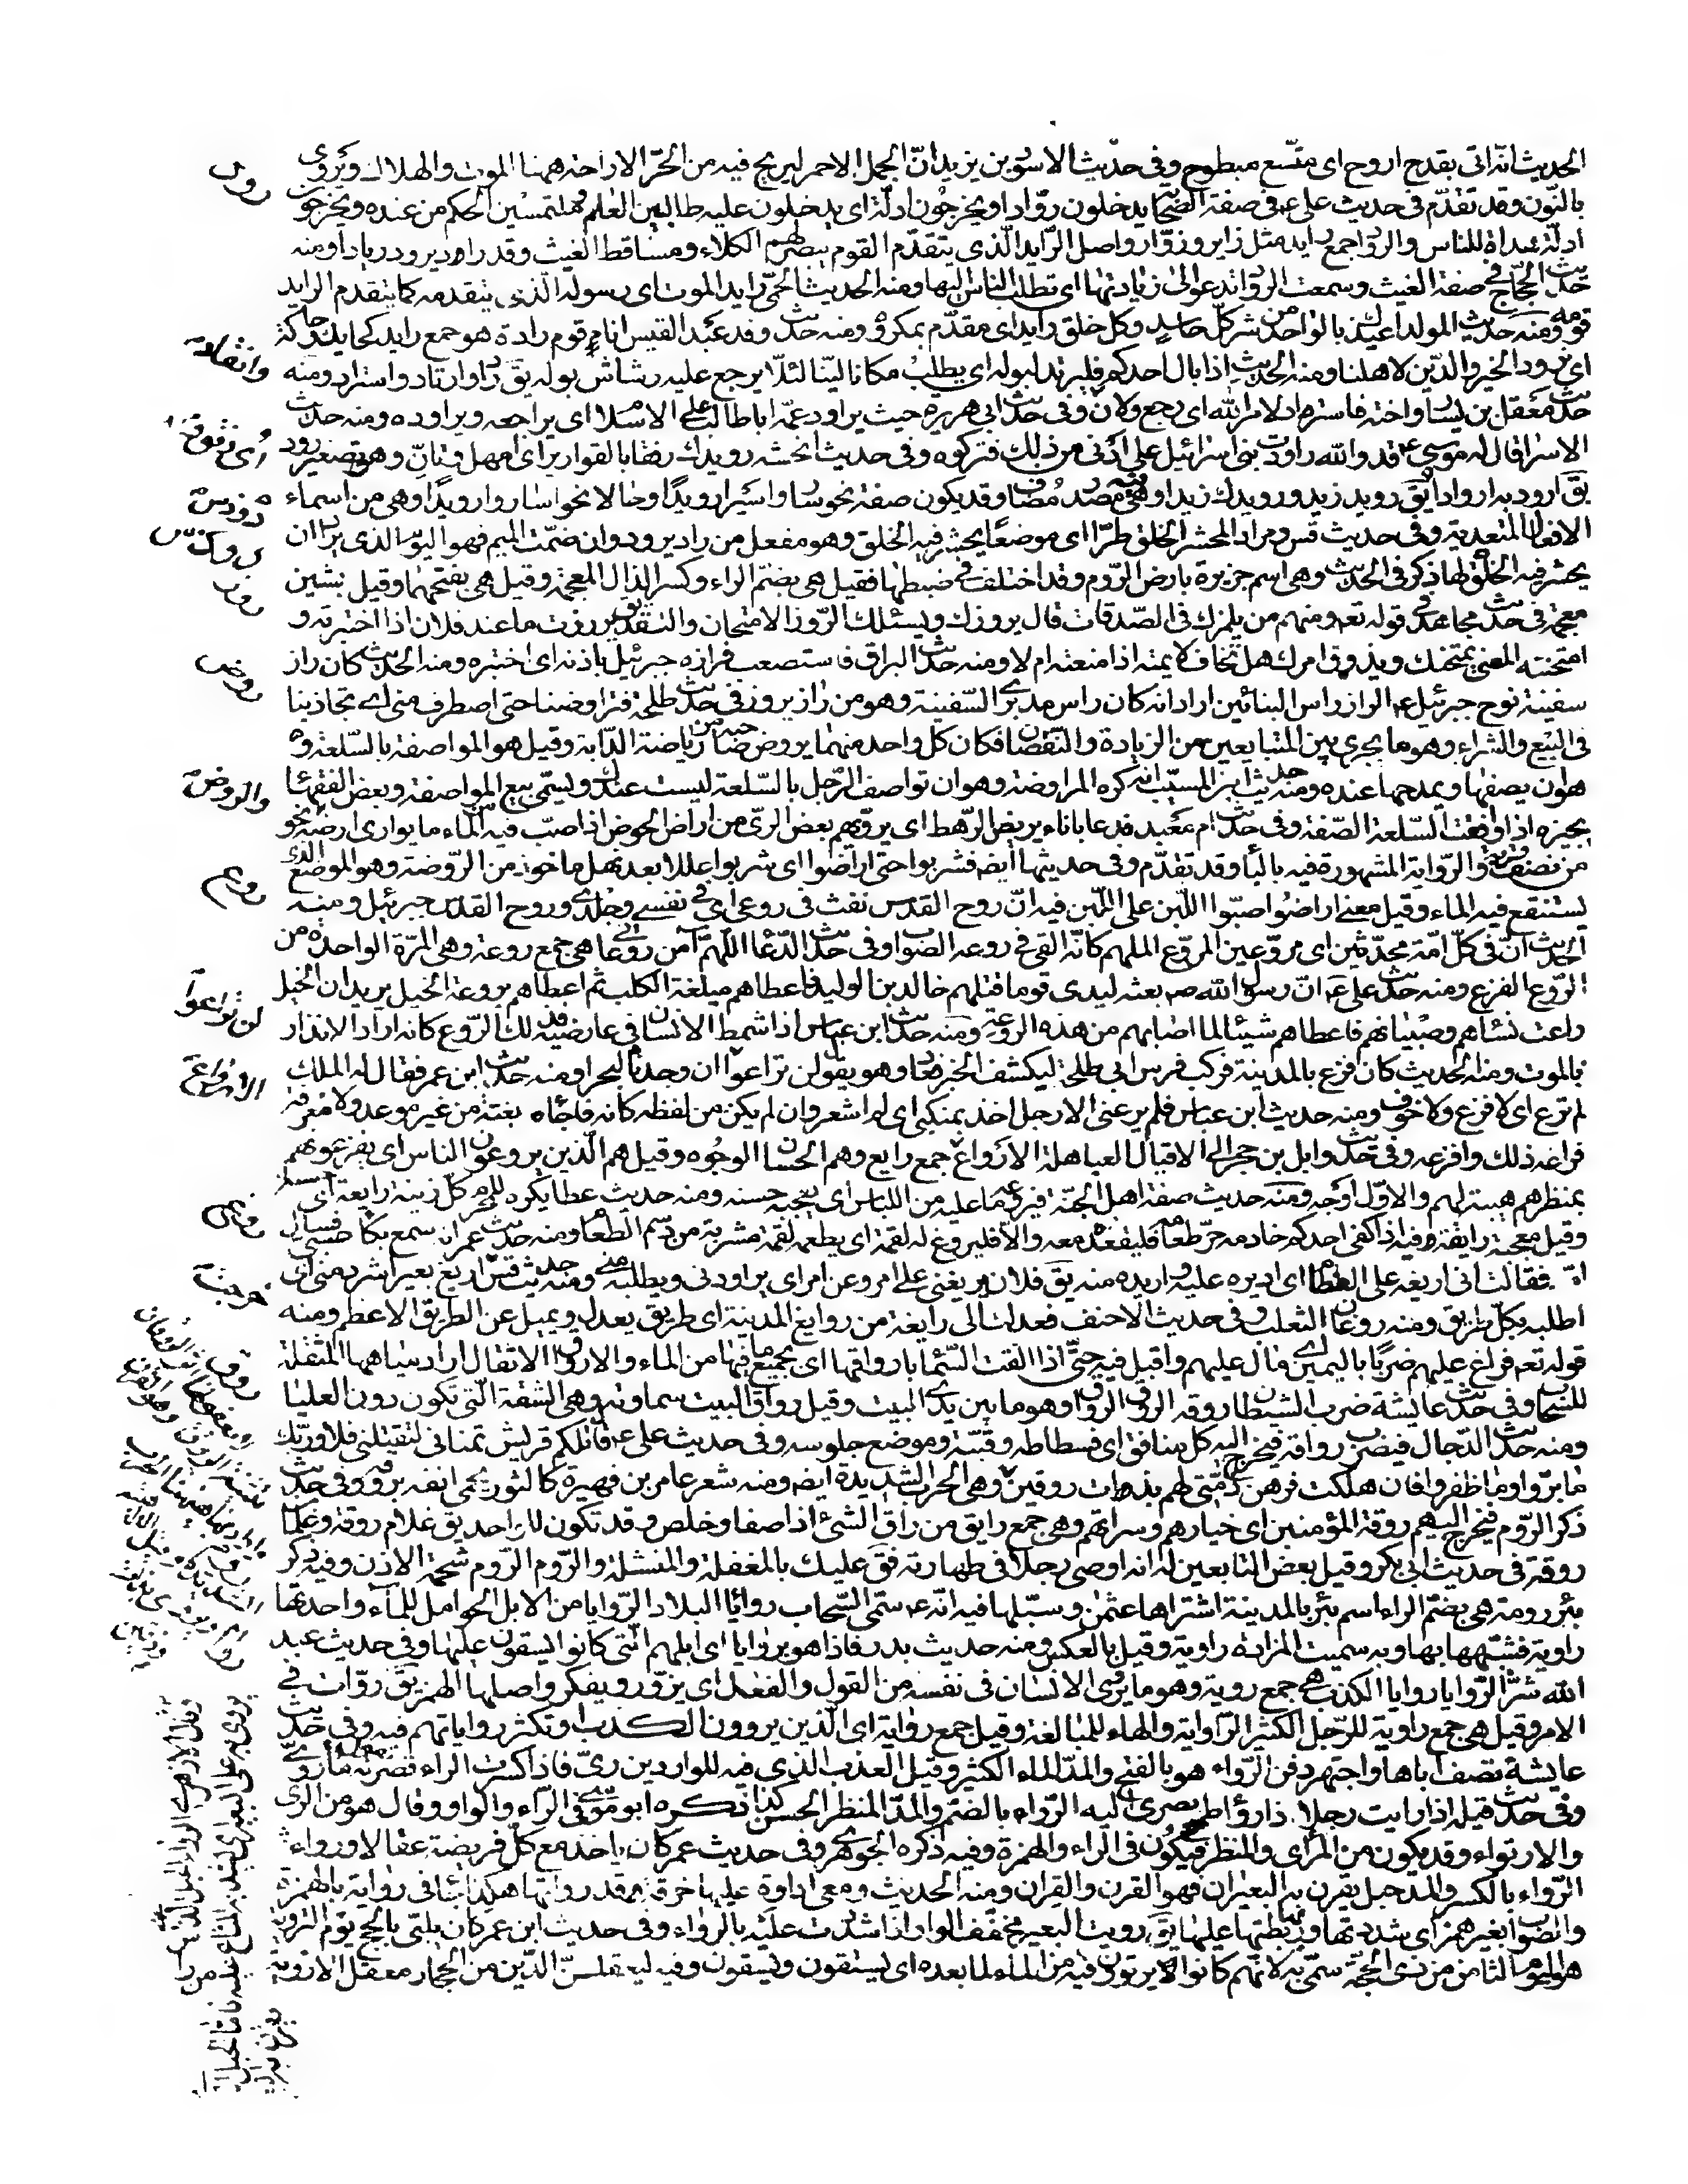 الحديث انه اتى بقدح اروح اى متّسع مبطوح وفى حديث الاسود بن يزيد انّ الجمل الاحمر ليريح فيه من الحرّ الاراحة ههنا الموت والهلاك ويروى
بالنّون وقد تقدّم فى حديث على ع فى صفة الصحابة يدخلون روّادا ويخرجون ادلّة اى يدخلون عليه طالبين العلم ملتمسين الحكم من عنده ويخرجون
ادلّة هداة للناس والروّاد جمع رايد مثل زاير وزوّار واصل الرّايد الّذى يتقدّم القوم يبصر لهم الكلاء ومساقط الغيث وقد راد يرود ريادا ومنه
حديث الحجّاج فى صفة الغيث وسمعت الروّاد تدعو الى زيادتها اى تطلب الناس اليها ومنه الحديث الحمّى رايد الموت اى رسوله الّذى يتقدمه كما يتقدم الرايد
قومه ومنه حديث المولد اعيذك بالواحد من شر كلّ حاسد وكل خلق رايد اى مقدّم بمكروه ومنه حديث وفد عبد القيس انا قوم رادة هو جمع رايد كحايك وحاكة
اى نرود الخير والدّين لاهلنا ومنه الحديث اذا بال احدكم فليرتد لبوله اى يطلب مكانا ليّنا لئلّا يرجع عليه رشاش بوله يق راد وارتاد واستراد ومنه
حديث معقل بن يسار واخته فاستراد لامر الله اى رجع ولان وفى حديث ابى هريرة حيث يراود عمّه ابا طالب على الاسلام اى يراجعه ويراوده ومنه حديث
الاسرا قال له موسى ع قد والله راودت بنى اسرائيل على ادنى من ذلك فتركوه وفى حديث انجشه رويدك رفقا بالقوارير اى امهل وتانّ وهو تصغير رود
يق ارود به اروادا يق رويد زيد ورويدك زيدا وهى فيه مصدر مضاف وقد يكون صفة نحو ساروا سيرا رويدا وحالا نحو ساروا رويدا وهى من اسماء
الافعال المتعدية وفى حديث قس ومرادا لمحشر الخلق طرّا اى موضعا يحشر فيه الخلق وهو مفعل من راد يرود وان ضمّت الميم فهو اليوم الذى يراد ان
يحشر فيه الخلق لها ذكر فى الحديث وهى اسم جزيرة بارض الرّوم وقد اختلف فى ضبطها فقيل هى بضمّ الراء وكسر الذال المعجمة وقيل هى بفتحهما وقيل بشين
معجمة فى حديث مجاهد فى قوله تعه ومنهم من يلمزك فى الصّدقات قال يروزك ويسئلك الرّوز الامتحان والتقدير يق رزت ما عند فلان اذا اختبرته و
امتحنته المعنى يمتحنك ويذوق امرك هل تخاف لايمته اذا منعته ام لا ومنه حديث البراق فاستصعب فرازه جبرئيل باذنه اى اختبره ومنه الحديث كان راز
سفينة نوح جبرئيل ع الراز راس البنائين اراد انه كان راس مدبرى السّفينة وهو من راز يروز فى حديث طلحة فتراوضنا حتى اصطرف منى اى تجاذبنا
فى البيع والشراء وهو ما يجرى بين المتبايعين من الزيادة والنّقصان فكان كل واحد منهما يروض صاحبه من رياضة الدّابة وقيل هو المواصفة بالسّلعة و
هو ان يصفها ويمدحها عنده ومنه حديث ابن المسيّب انه كره المراوضة وهو ان تواصف الرّجل بالسّلعة ليست عندك ويسمّى بيع المواصفة وبعض الفقهاء
يجيزه اذا وافقت السّلعة الصّفة وفى حديث ام معبد فدعا باناء يريض الرّهط اى يروّيهم بعض الرىّ من اراض الحوض اذا صبّ فيه من الماء ما يوارى ارضه نحو
من نصف قربة والرّواية المشهورة فيه بالباء وقد تقدّم وفى حديثها ايضه فشربوا حتى اراضوا اى شربوا عللا بعد نهل ماخوذ من الرّوضة وهو الموضع الذى
يستنقع فيه الماء وقيل معنى اراضوا صبّوا اللّبن على اللّبن فيه انّ روح القدس نفث فى روعى اى فى نفسى وخلدى وروح القدس جبرئيل ومنه
الحديث انّ فى كلّ امّة محدّثين اى مروّعين المروّع الملهم كانّه القى فى روعه الصواب وفى حديث الدّعا اللّهم آمن روعاتى هى جمع روعة وهى المرّة الواحدة من
الرّوع الفزع ومنه حديث على ع انّ رسول الله صه بعثه ليدى قوما قتلهم خالد بن الوليد فاعطاهم ميلغة الكلب ثم اعطاهم بروعة الخيل يريد ان الخيل
راعت نسائهم وصبيانهم فاعطاهم شيئا لما اصابهم من هذه الروعة ومنه حديث ابن عباس اذا شمط الانسان فى عارضيه فذلك الرّوع كانه اراد الانذار
بالموت ومنه الحديث كان فزع بالمدينة فركب فرس ابى طلحة ليكشف الخبر فعاد وهو يقول لن تراعوا ان وجدناه لبحرا ومنه حديث ابن عمر فقال له الملك
لم ترع اى لا فزع ولا خوف ومنه حديث ابن عباس فلم يرعنى الا رجل اخذ بمنكبى اى لم اشعر وان لم يكن من لفظه كانه فاجاه بغتة من غير موعد ولا معرفة
فراعه ذلك وافزعه وفى حديث وايل بن حجر الى الاقيال العباهلة الارواع جمع رايع وهم الحسان الوجوه وقيل هم الّذين يروعون الناس اى يفزعونهم
بمنظرهم هيبة لهم والاوّل اوجه ومنه حديث صفة اهل الجنّة فيروعه ما عليه من اللباس اى يعجبه حسنه ومنه حديث عطا يكره للمحرم كلّ زينة رايعة اى حسنة
وقيل معجبة رايقة وفيه اذا كفى احدكم خادمه حرّ طعامه فليقعده معه والا فليروغ له لقمة اى يطعمه لقمة مشربة من دسم الطعام ومنه حديث عمر انه سمع بكاء صبى فسال
امّه فقالت انى اريغه على الفطام اى اديره عليه واريده منه يق فلان يريغنى على امر وعن امر اى يراودنى ويطلبه منى ومنه حديث قسّ اريغ بعيرا شرد منى اى
اطلبه بكل طريق ومنه روغان الثعلب وفى حديث الاحنف فعدلت الى رايغة من روايغ المدينة اى طريق يعدل ويميل عن الطريق الاعظم ومنه
قوله تعه فراغ عليهم ضربًا باليمين اى مال عليهم واقبل فيه حتّى اذا القت السّماء باروقها اى بجميع ما فيها من الماء والارواق الاثقال اراد مياهها المثقلة
للسّحاب وفى حديث عايشة ضرب الشيطان روقه الروق الرواق وهو ما بين يدى البيت وقيل رواق البيت سماوته وهى الشقّة الّتى تكون دون العليا
ومنه حديث الدّجال فيضرب رواقه فيخرج اليه كل منافق اى فسطاطه وقبّته وموضع جلوسه وفى حديث على ع تلكم قريش تمنانى لتقتلنى فلا وربّك
ما برّوا وما ظفروا فان هلكت فرهن ذمّتى لهم بذات روقين وهى الحرب الشديدة ايضه ومنه شعر عامر بن فهيرة كالثور يحمى انفه بروقه وفى حديث
ذكر الرّوم فيخرج اليهم روقة المؤمنين اى خيارهم وسراتهم وهى جمع رايق من راق الشئ اذا صفا وخلص وقد تكون للواحد يق غلام روقة وغلمان
روقة فى حديث ابى بكر وقيل بعض التابعين انه اوصى رجلا فى طهارته فق عليك بالمغفلة والمنشلة والرّوم الرّوم شحمة الاذن وفيه ذكر
بئر رومة هى بضمّ الراء اسم بئر بالمدينة اشتراها عثمن وسبّلها فيه انّه ع سمّى السّحاب روايا البلاد الرّوايا من الابل الحوامل للمآء واحدتها
راوية فشبّهها بها وبه سميت المزادة راوية وقيل بالعكس ومنه حديث بدر فاذا هو بروايا اى ابلهم الّتى كانوا يسقون عليها وفى حديث عبد
الله شرّ الرّوايا روايا الكذب هى جمع روية وهو ما يروّى الانسان فى نفسه من القول والفعل اى يزوّر ويفكر واصلها الهمز يق روّات فى
الامر وقيل هى جمع راوية للرّجل الكثير الرّاواية والهاء للمبالغة وقيل جمع رواية اى الّذين يروون الكذب او تكثر رواياتهم فيه وفى حديث
عايشة تصف اباها واجتهر دفن الرّواء هو بالفتح والمدّ الماء الكثير وقيل العذب الذى فيه للواردين رىّ فاذا كسرت الراء قصرته
وفى حديث قيله اذا رايت رجلا ذا رواء طمح بصرى اليه الرّواء بالضمّ والمدّ المنظر الحسن كذا ذكره ابو موسى فى الرّآء والواو وقال هو من الرّى
والارتواء وقد يكون من المرأى والمنظر فيكون فى الراء والهمزة وفيه ذكره الجوهرى وفى حديث عمر كان ياخذ مع كلّ فريضة عقالا ورواء
الرّواء بالكسر والمدّ حبل يقرن به البعيران فهو القرن والقران ومنه الحديث ومعى اداوة عليها خرقة قد رواتها هكذا جائنا فى رواية بالهمز
والصّواب بغير همز اى شددتها وربطتها عليها يق رويت البعير مخفّف الواو اذا شددت عليه بالرواء وفى حديث ابن عمر كان يلبّى بالحج يوم التروية
هو اليوم الثامن من ذى الحجّة سمّى به لانّهم كانوا يرتوون فيه من الماء لما بعده اى يستقون ويسقون وفيه ليعقلنّ الدّين من الحجاز معقل الاروية
رود
وانقادت
روذس
روز
روض
والروضة
روع
لن تراعوا
الارواع
روغ
روق